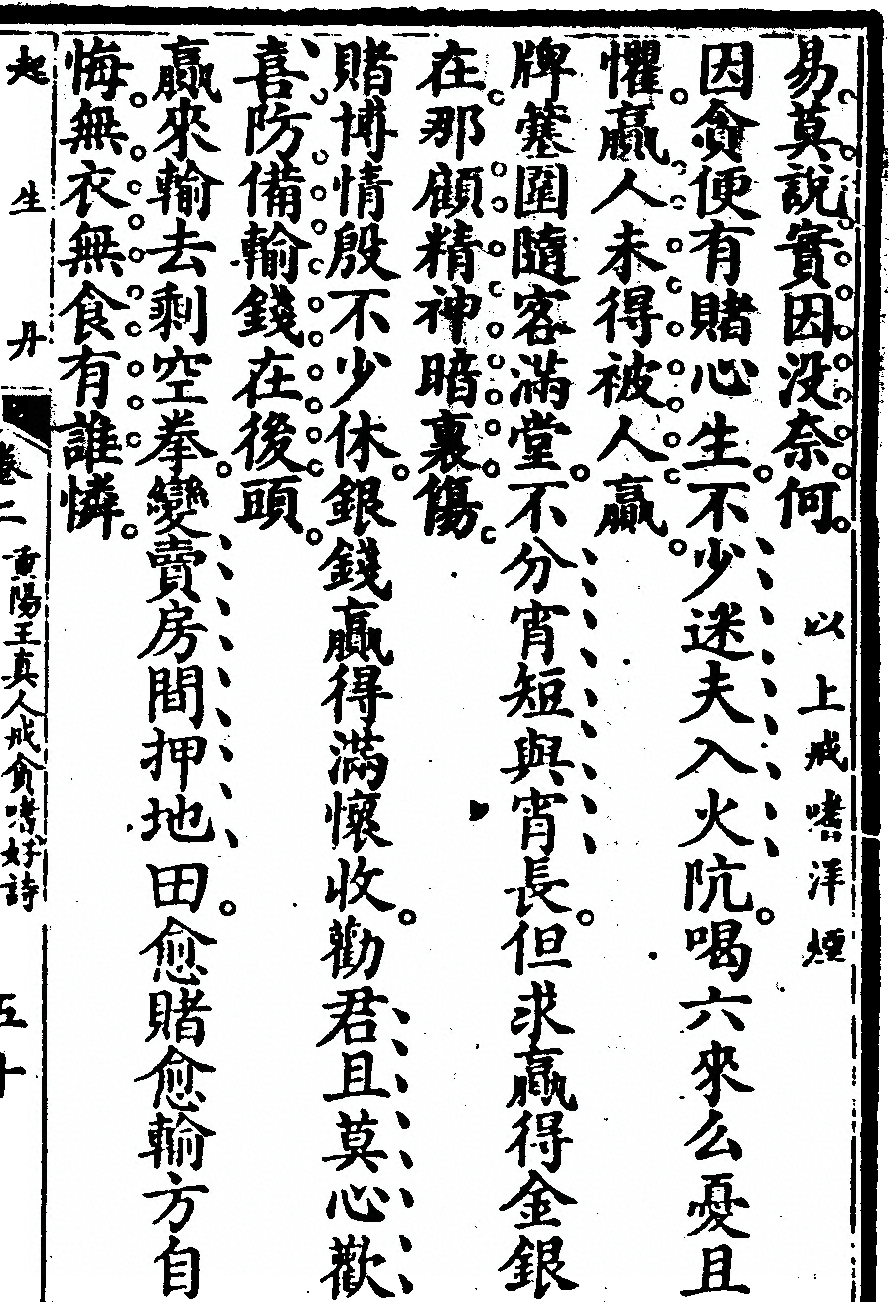 易莫說實因没奈何以上戒嗜洋煙
因貪便有賭心生不少迷夫入火阬喝六來么憂且
懼贏人未得被人贏
牌簺圍隨客滿堂不分宵短與宵長但求贏得金銀
在那顧精神暗裏傷
賭博情殷不少休銀錢贏得滿懷收勸君且莫心歡
喜防備輸錢在後頭
贏來輸去剩空拳變賣房間押地田愈賭愈輸方自
悔無衣無食有誰憐
起生丹
卷二
重陽王真人戒貪嗜好詩
五十